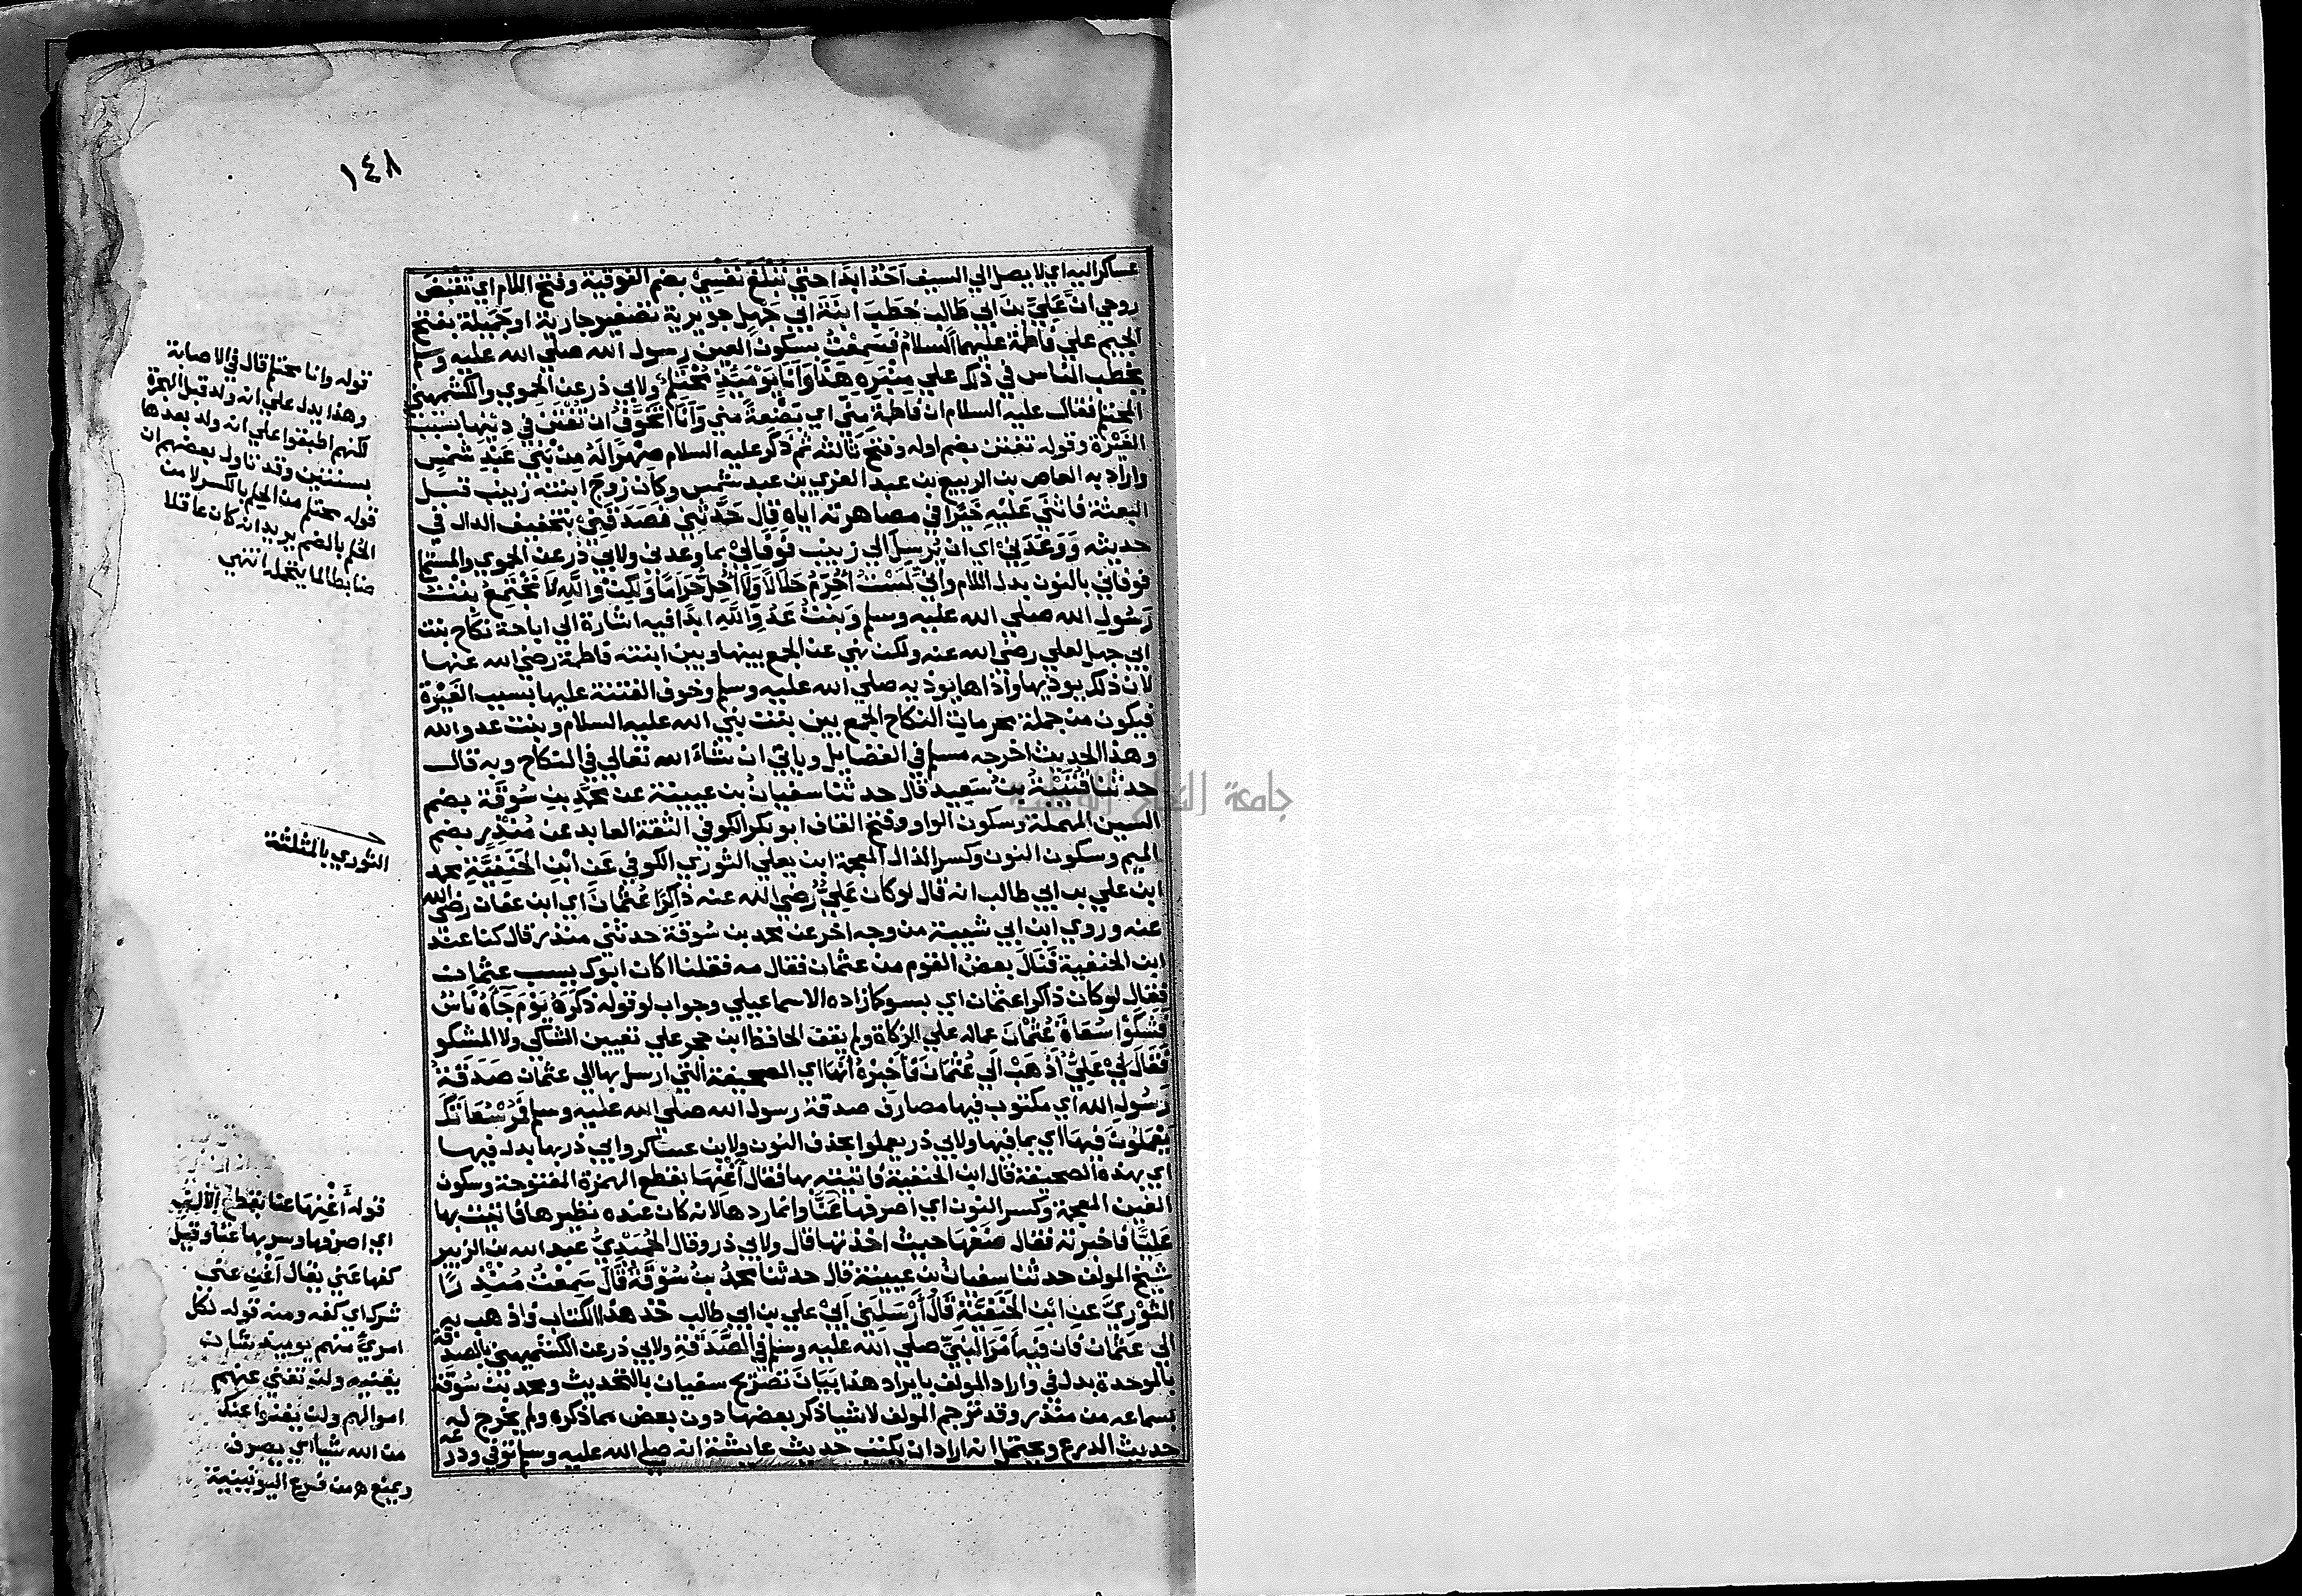 ١٤٨
عساكر اليه اي لا يصل الي السيف احد ابدا حتي تبلغ نفسي بضم الفوقية وفتح اللام اي تقبض
روحي ان علي بن ابي طالب خطب ابنة ابي جهل جويرية تصغير جارية او جميلة بفتح
الجيم علي فاطمة عليهما السلام فسمعت بسكون العين رسول الله صلي الله عليه وسلم
يخطب الناس في ذلك علي منبره هذا وانا يومئذ محتلم ولابي ذر عن الحموي والكشميهني
المحتلم فقال عليه السلام ان فاطمة مني اي بضعة مني وانا اتخوف ان تفتن في دينها بسبب
الغيرة وقوله تفتن بضم اوله وفتح ثالثه ثم ذكر عليه السلام صهرا له من بني عبد شمس
واراد به العاص بن الربيع بن عبد العزي بن عبد شمس وكان زوج ابنته زينب قبل
البعثة فاثني عليه خيرا في مصاهرته اياه قال حدثني فصدقني بتخفيف الدال في
حديثه ووعدني اي ان يرسل الي زينب فوفالي بما وعدني ولابي ذر عن الحموي والمستملي
فوفاني بالنون بدل اللام واني لست احرم حلالا ولا احل حراما ولكن والله لا تجتمع بنت
رسول الله صلي الله عليه وسلم وبنت عدو الله ابدا فيه اشارة الي اباحة نكاح بنت
ابي جهل لعلي رضي الله عنه ولكن نهي عن الجمع بينها وبين ابنته فاطمة رضي الله عنها
لان ذلك يوذيها واذاها يوذيه صلي الله عليه وسلم وخوف الفتنة عليها بسبب الغيرة
فيكون من جملة محرمات النكاح الجمع بين بنت نبي الله عليه السلام وبنت عدو الله
وهذا الحديث اخرجه مسلم في الفضايل وياتي ان شاء الله تعالي في النكاح وبه قال
حدثنا قتيبة بن سعيد قال حدثنا سفيان بن عيينة عن محمد بن سوقة بضم
السين المهملة وسكون الواو وفتح القاف ابو بكر الكوفي الثقة العابد عن منذر بضم
الميم وسكون النون وكسر الذال المعجمة ابن يعلي الثوري الكوفي عن ابن الحنفية محمد
ابن علي بن ابي طالب انه قال لو كان علي رضي الله عنه ذاكرا عثمان اي ابن عفان رضي الله
عنه وروي ابن ابي شيبة من وجه اخر عن محمد بن سوقة حدثني منذر قال كنا عند
ابن الحنفية فنال بعض القوم من عثمان فقال مه فقلنا اكان ابوك يسب عثمان
فقال لو كان ذاكرا عثمان اي بسو كما زاده الاسماعيلي وجواب لو قوله ذكره يوم جاه ناس
فشكوا سعاة عثمان عماله علي الزكاة ولم يقف الحافظ ابن حجر علي تعيين الشاكي ولا المشكو
فقال لي علي اذهب الي عثمان فاخبره انها اي الصحيفة التي ارسل بها الي عثمان صدقة
رسول الله اي مكتوب فيها مصارف صدقة رسول الله صلي الله عليه وسلم فمر سعاتك
يعملون فيها اي بما فيها ولابي ذر يعملوا بحذف النون ولابن عساكر وابي ذر بها بدل فيها
اي بهذه الصحيفة قال ابن الحنفية فاتيته بها فقال اغنها بقطع الهمزة المفتوحة وسكون
الغين المعجمة وكسر النون اي اصرفها عنا وانما ردها لانه كان عنده نظيرها فاتيت بها
عليا فاخبرته فقال ضعها حيث اخذتها قال ولابي ذر وقال الحميدي عبد الله بن الزبير
شيخ المولف حدثنا سفيان بن عيينة قال حدثنا محمد بن سوقة قال سمعت منذرا
الثوري عن ابن الحنفية قال ارسلني ابي علي بن ابي طالب خذ هذا الكتاب فاذهب به
الي عثمان فان فيه امر النبي صلي الله عليه وسلم في الصدقة ولابي ذر عن الكشميهني بالصدقة
بالموحدة بدل في واراد المولف بايراد هذا بيان تصريح سفيان بالتحديث ومحمد بن سوقة
بسماعه من منذر وقد ترجم المولف لاشيا ذكر بعضها دون بعض مما ذكره ولم يخرج له
حديث الدرع ويحتمل انه اراد ان يكتب حديث عايشة انه صلي الله عليه وسلم توفي ودرعه
قوله وانا محتلم قال في الاصابة
وهذا يدل علي انه ولد قبل الهجرة
لكنهم اطبقوا علي انه ولد بعدها
بسنتين وقد تاول بعضهم ان
قوله محتلم من الحلم بالكسر لا من
الحلم بالضم يريد انه كان عاقلا
ضابطا لما يتحمله انتهي
الثوري بالمثلثة
قوله اغنها عنا بقطع الالف
اي اصرفها وسر بها عنا وقيل
كفها عني يقال اغن عني
شرك اي كفه ومنه قوله لكل
امرئ منهم يوميذ شان
يغنيه ولن تغني عنهم
اموالهم ولن يغنوا عنك
من الله شيا اي يصرف
ويمنع من فرع اليونينية
جامعة النجاح الوطنية